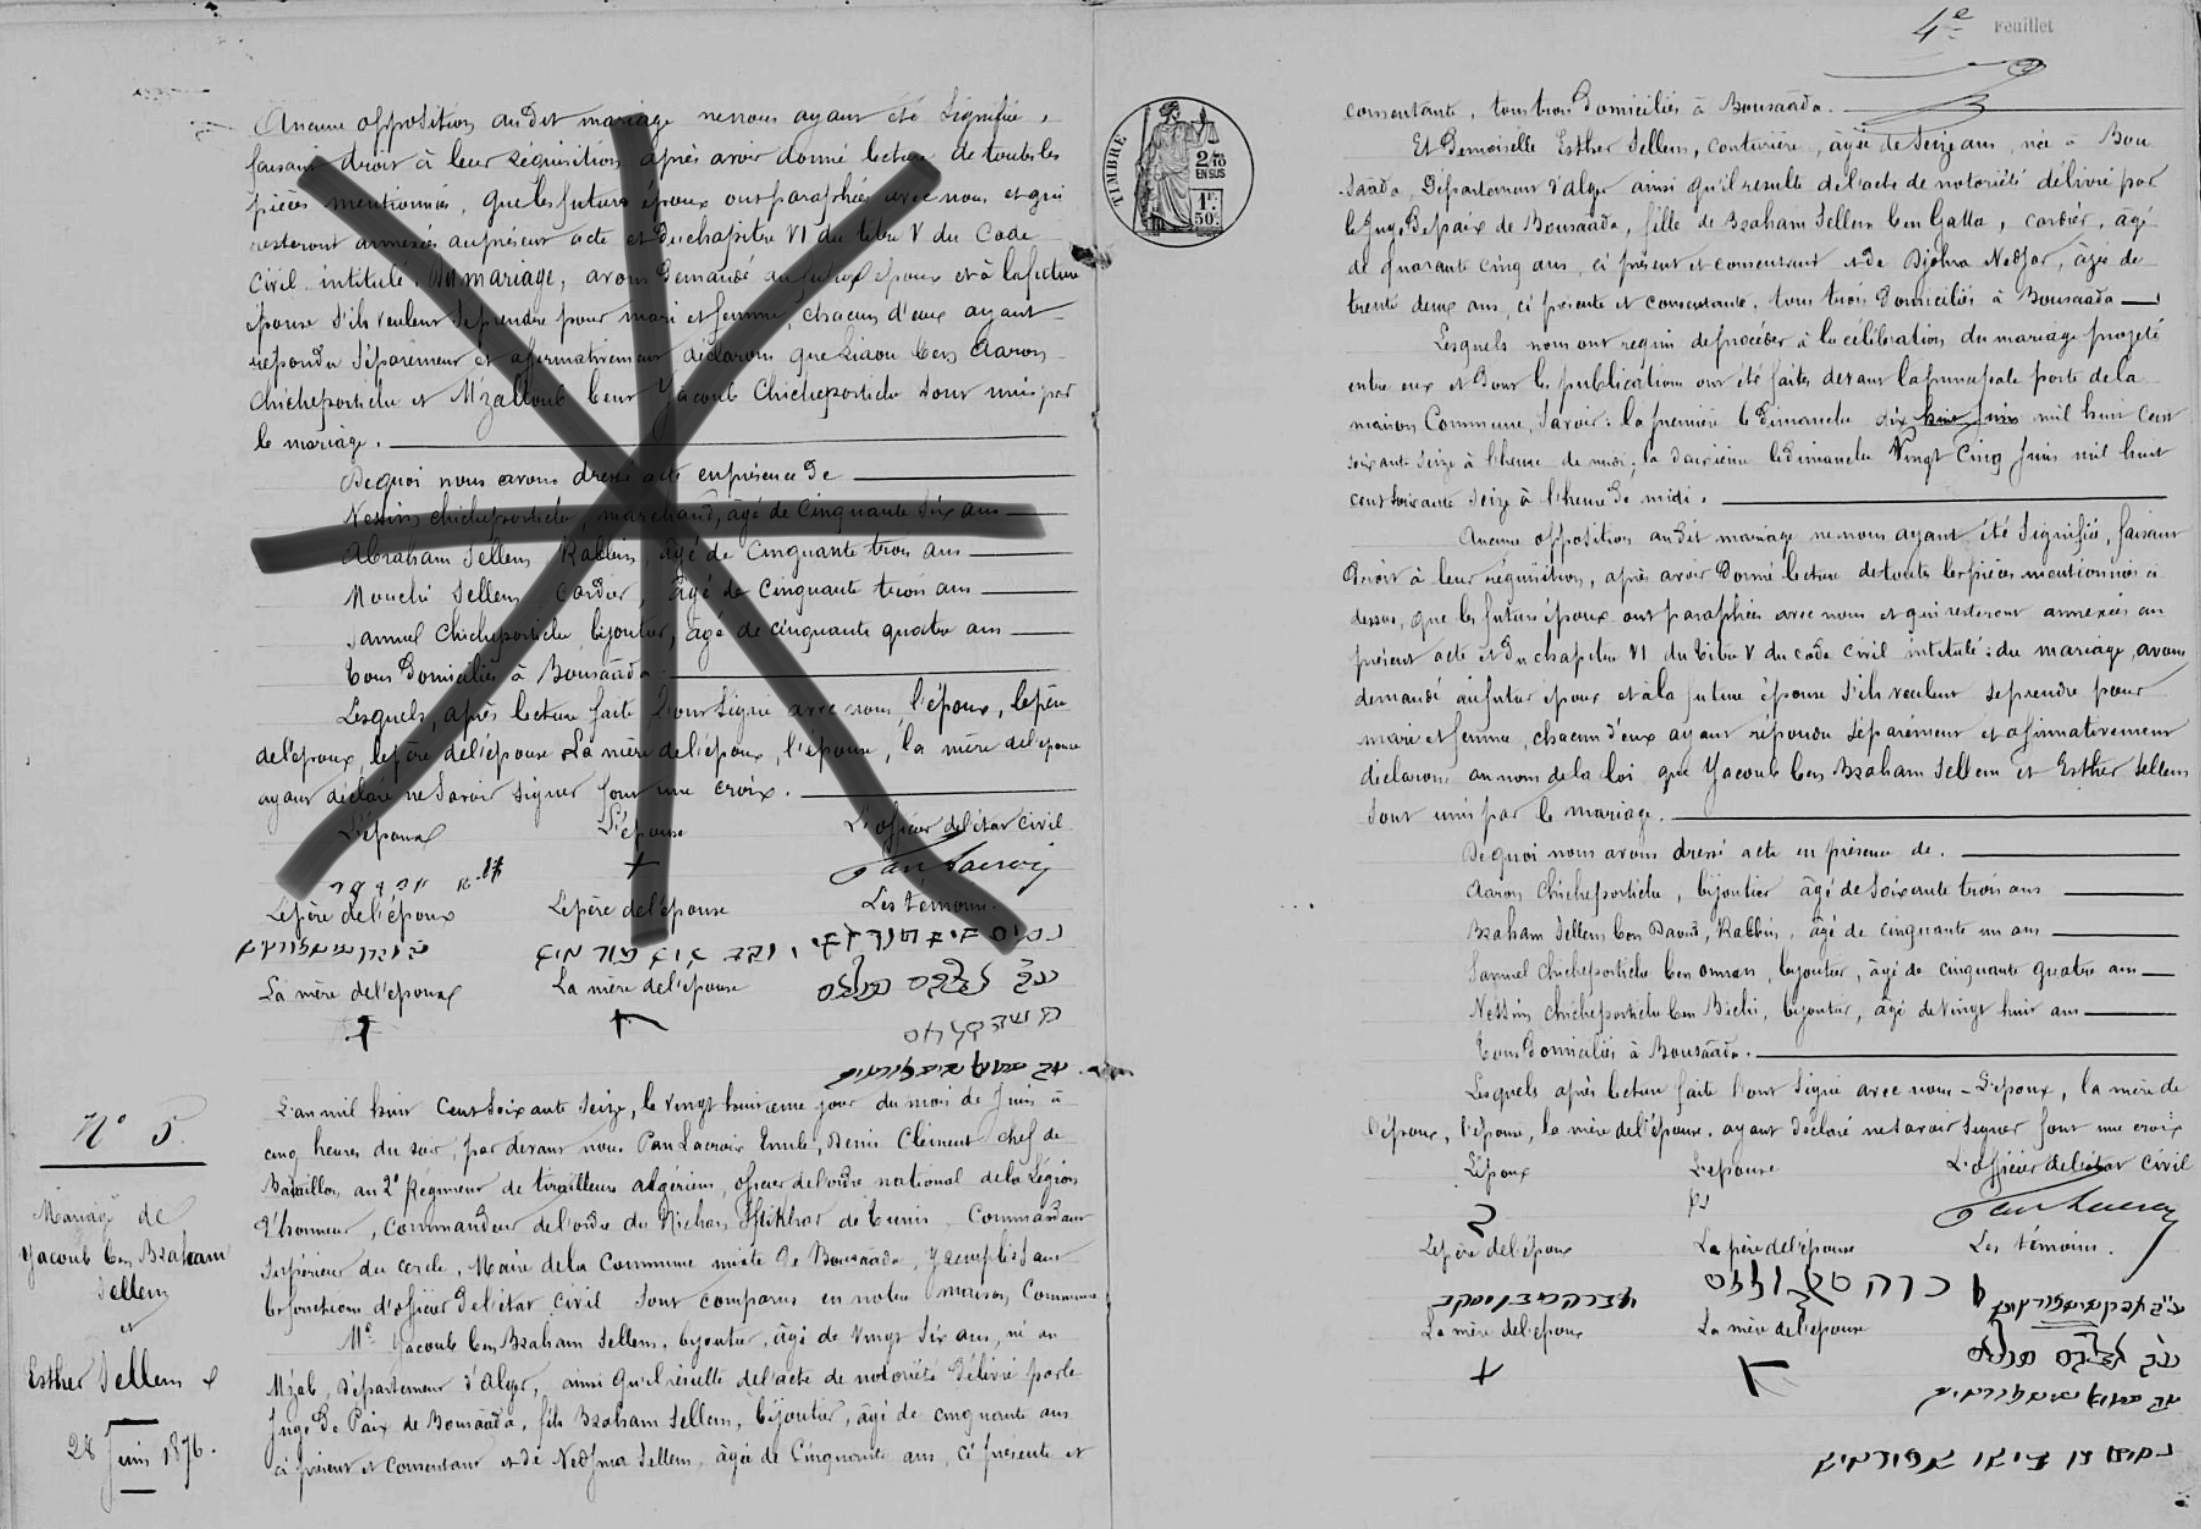 Aucune opposition audit mariage ne nous ayant été signifiée,
faisant droit à leur réquisition après avoir donné lecture de toutes les
pièces mentionnées, que les futurs époux ont paraphées avec nous et qui
resteront annexées au présent acte et du chapitre VI du titre V du Code
Civil intitulé Du mariage, avons demandé au futur époux et à la future
épouse s'ils veulent se prendre pour mari et femme, chacun d'eux ayant
répondu séparément et afirmativement déclarons que Liaou ben Aaron
Chicheportiche et M'zalloub bent Yacoub Chicheportiche sont unis par
le mariage.
De quoi nous avons dressé acte en présence de
Nessim chicheportiche, marchand, âgé de Cinquante six ans
Abraham Sellem Rabbin, âgé de Cinquante trois ans
Mouchi Sellem Cordier, âgé de Cinquante trois ans
Samuel Chicheportiche bijoutier, âgé de cinquante quatre ans
tous domiciliés à Bousaâda.
Lesquels, après lecture faite l'ont signé avec nous, l'époux, le père
de l'époux, le père de l'épouse La mère de l'époux, l'épouse, la mère de l'épouse
ayant déclaré ne savoir signer font une croix.
L'époux L'épouse L'officier de l'état civil
+
Le père de l'époux Le père de l'épouse Les témoins.
La mère de l'époux La mère de l'épouse
N° 5.
Mariage de
Yacoub ben Braham
Sellem
et
Esther Sellem
28 Juin 1876.
L'an mil huit Cent soixante seize, le vingt huitième jour du mois de Juin à
cinq heures du soir, par devant nous Pan Lacroix Emile, Denis Clément chef de
Bataillon au 2e Régiment de tirailleurs algériens, officier de l'ordre national de la Légion
d'honneur, Commandeur de l'ordre du Nichan Iftikhar de Tunis, Commandant
Supérieur du cercle, Maire de la Commune mixte de Bousaâda, remplissant
les fonctions d'officier de l'état civil sont comparus en notre maison Commune
Mr Yacoub ben Braham Sellem, bijoutier, âgé de vingt six ans, né au
Mzab, département d'Alger, ainsi qu'il résulte de l'acte de notoriété délivré par le
Juge de Paix de Bousaâda, fils Braham Sellem, bijoutier, âgé de cinquante ans
ci présent et consentant et de Nedjma Sellem, âgée de Cinquante ans, ci présente et
4e Feuillet
TIMBRE
2/10
EN SUS
1F.
50c.
consentante, tous trois domiciliés à Bousaâda.
Et Demoiselle Esther Sellem, couturière, âgée de seize ans, née à Bou
Saâda, Département d'Alger ainsi qu'il résulte de l'acte de notoriété délivré par
le Juge de paix de Bousaâda, fille de Braham Sellem ben Galla, cordier, âgé
de quarante cinq ans, ci présent et consentant et de Djohra Nedjar, âgée de
trente deux ans, ci présente et consentante, tous trois domiciliés à Bousaâda
Lesquels nous ont requis de procéder à la célébration du mariage projeté
entre eux et dont les publications ont été faites devant la principale porte de la
maison Commune, Savoir: la première le dimanche dix huit Juin mil huit Cent
soixante seize à l'heure de midi; la deuxième le dimanche Vingt Cinq Juin mil huit
cent soixante seize à l'heure de midi.
Aucune opposition audit mariage ne nous ayant été signifiée, faisant
droit à leur réquisition, après avoir donné lecture de toutes les pièces mentionnées ci
dessus, que les futurs époux ont paraphées avec nous et qui resteront annexées au
présent acte et du chapitre VI du titre V du code Civil intitulé: du mariage, avons
demandé au futur époux et à la future épouse s'ils veulent se prendre pour
mari et femme, chacun d'eux ayant répondu séparément et afirmativement
déclarons au nom de la loi que Yacoub ben Braham Sellem et Esther Sellem
sont unis par le mariage.
De quoi nous avons dressé acte en présence de.
Aaron Chicheportiche, bijoutier âgé de soixante trois ans
Braham Sellem ben David, Rabbin, âgé de cinquante un ans
Samuel Chicheportiche ben Omran, bijoutier, âgé de cinquante quatre ans
Nessim Chicheportiche ben Bichi, bijoutier, âgé de vingt huit ans
Tous domiciliés à Bousaâda.
Lesquels après lecture faite l'ont signé avec nous - L'époux, la mère de
l'époux, l'épouse, la mère de l'épouse. ayant déclaré ne savoir signer font une croix
L'époux L'épouse L'officier de l'état civil
Le père de l'époux Le père de l'épouse Les témoins.
La mère de l'époux La mère de l'épouse
+